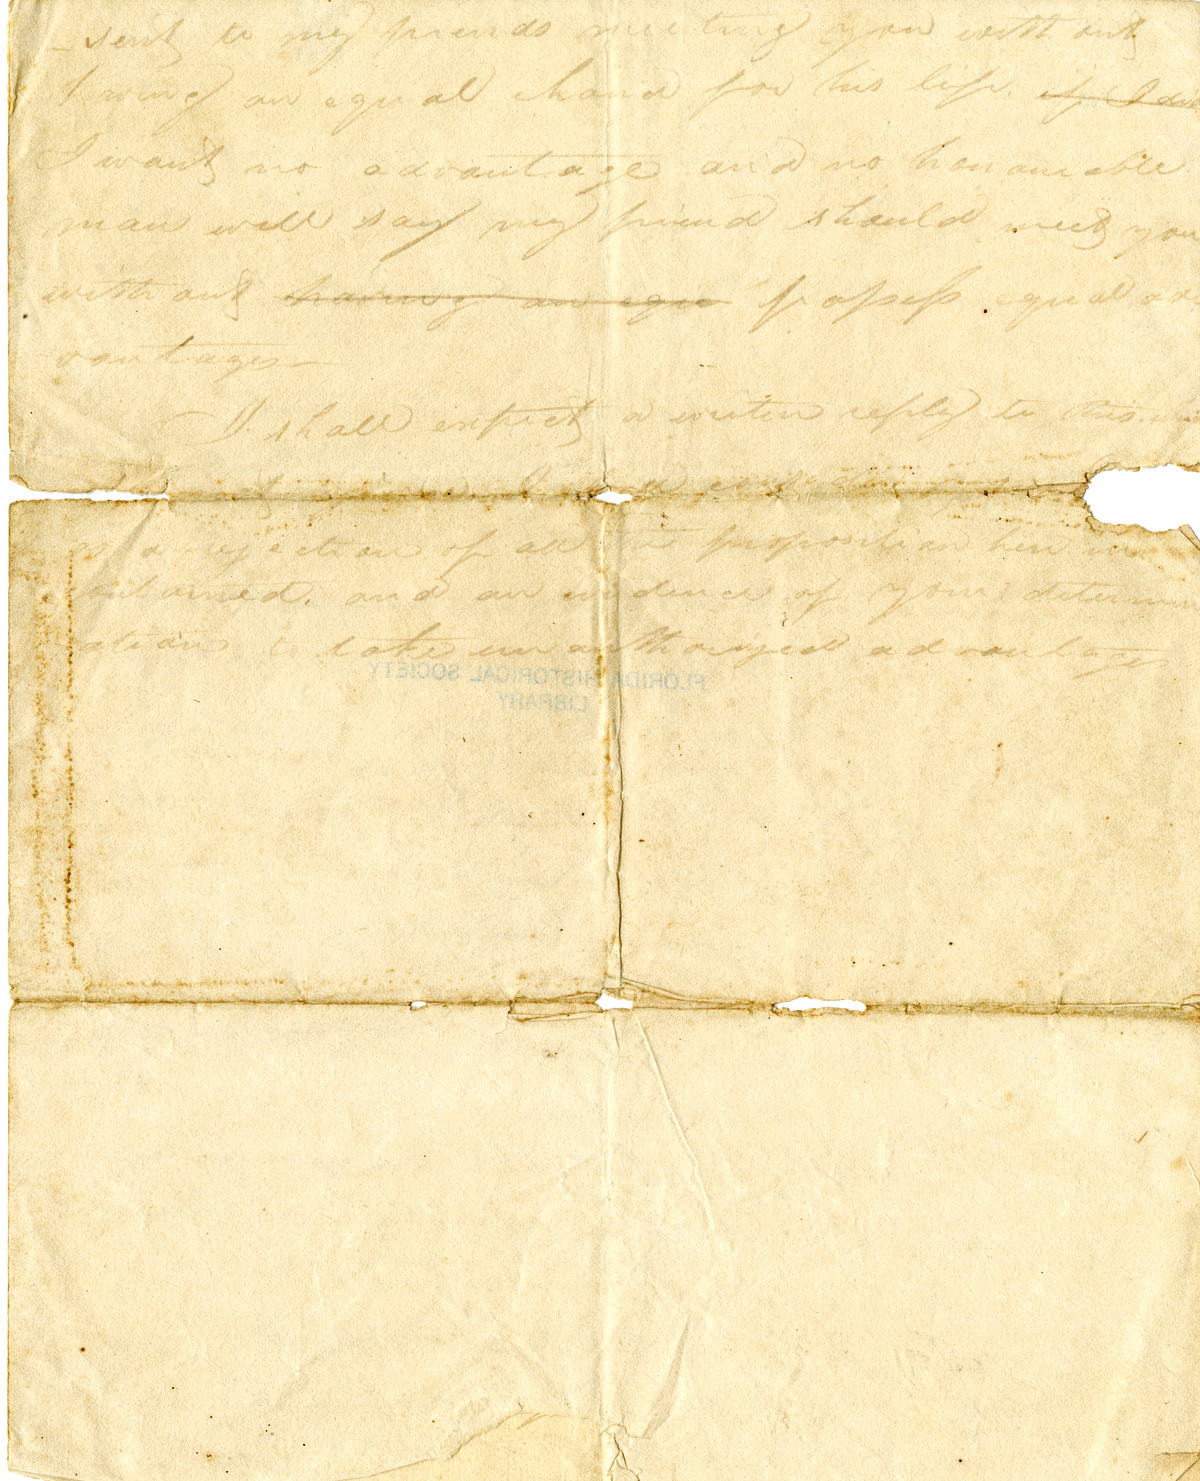 -sent to my friends meeting you without
having an equal chance for his life. if I do
I want no advantage and no honourable
man will say my friend should meet you
without having an equ possess equal ad-
vantages—
I shall expect a writen reply to this
as a rejection of all the proposition here in
contained. and an evidence of your determin
ation to take unauthorized advantages
FLORIDA HISTORICAL SOCIETY
LIBRARY